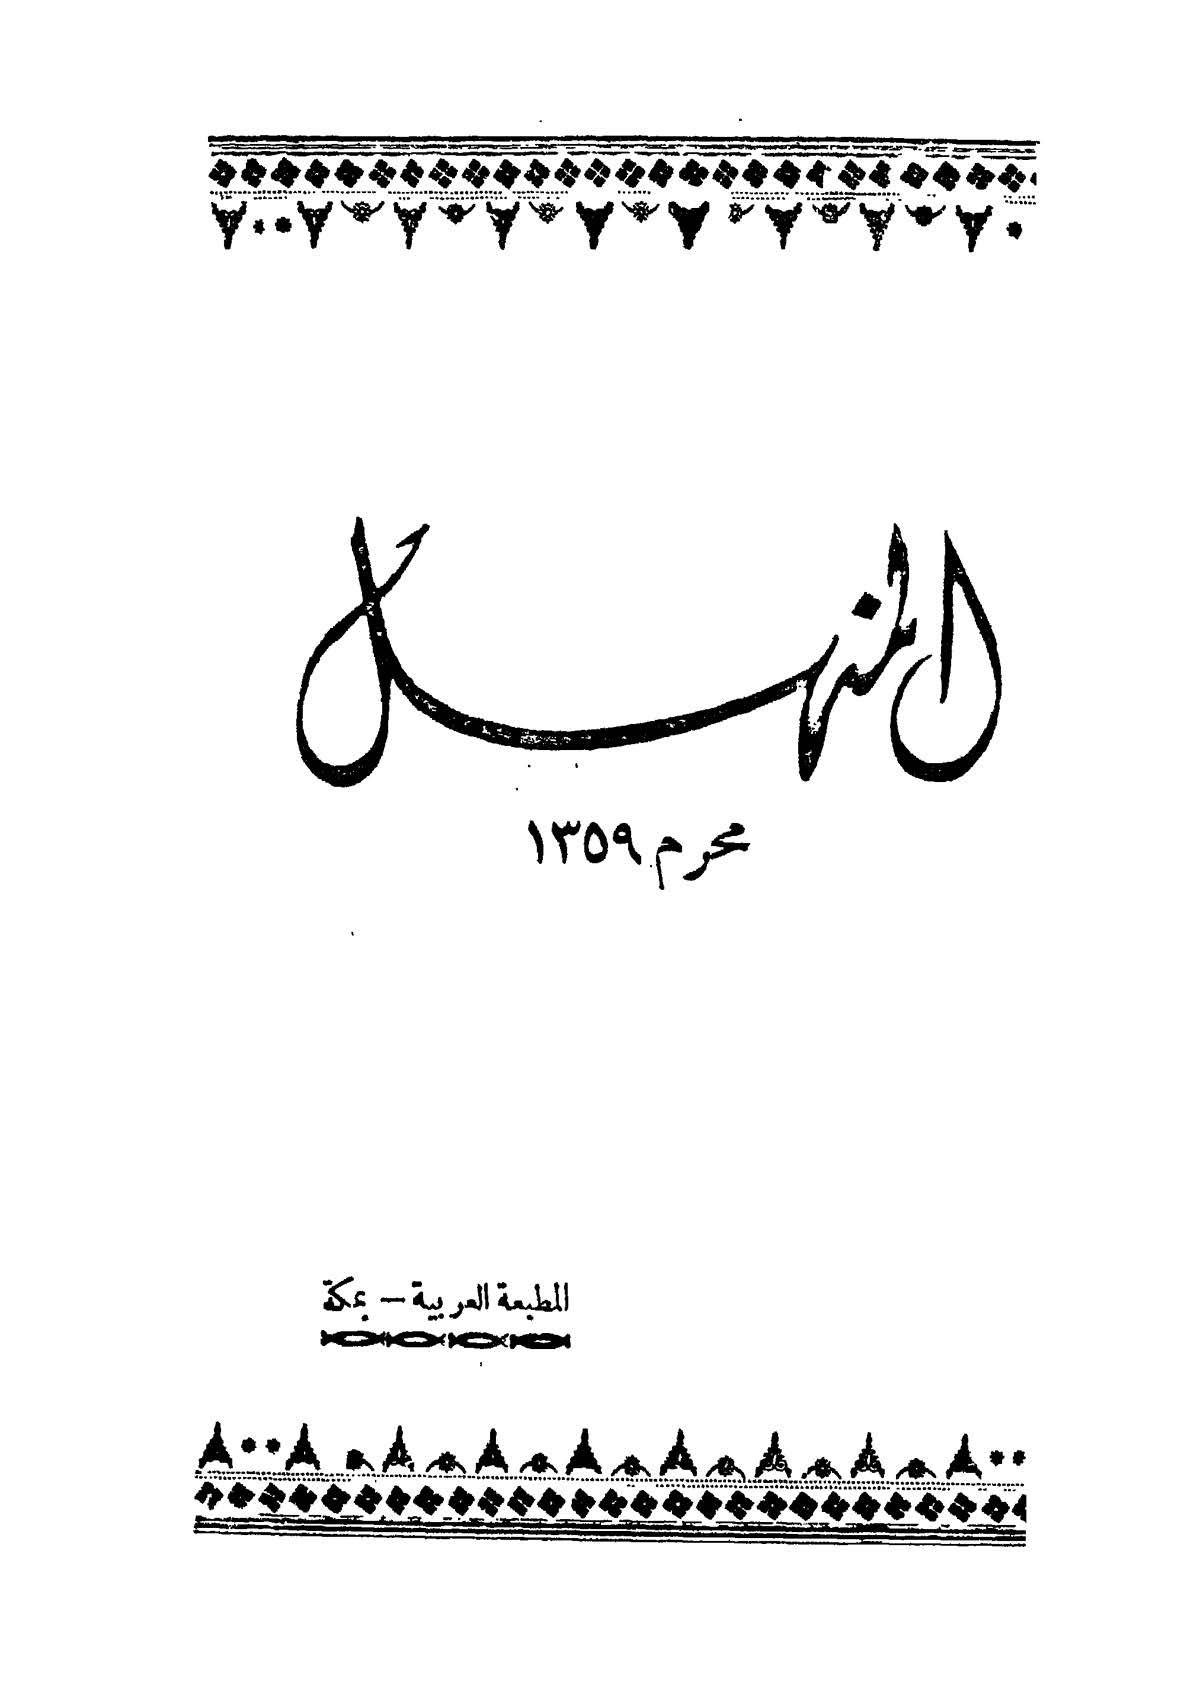 المنهل
محرم ١٣٥٩
المطبعة العربية – بمكة